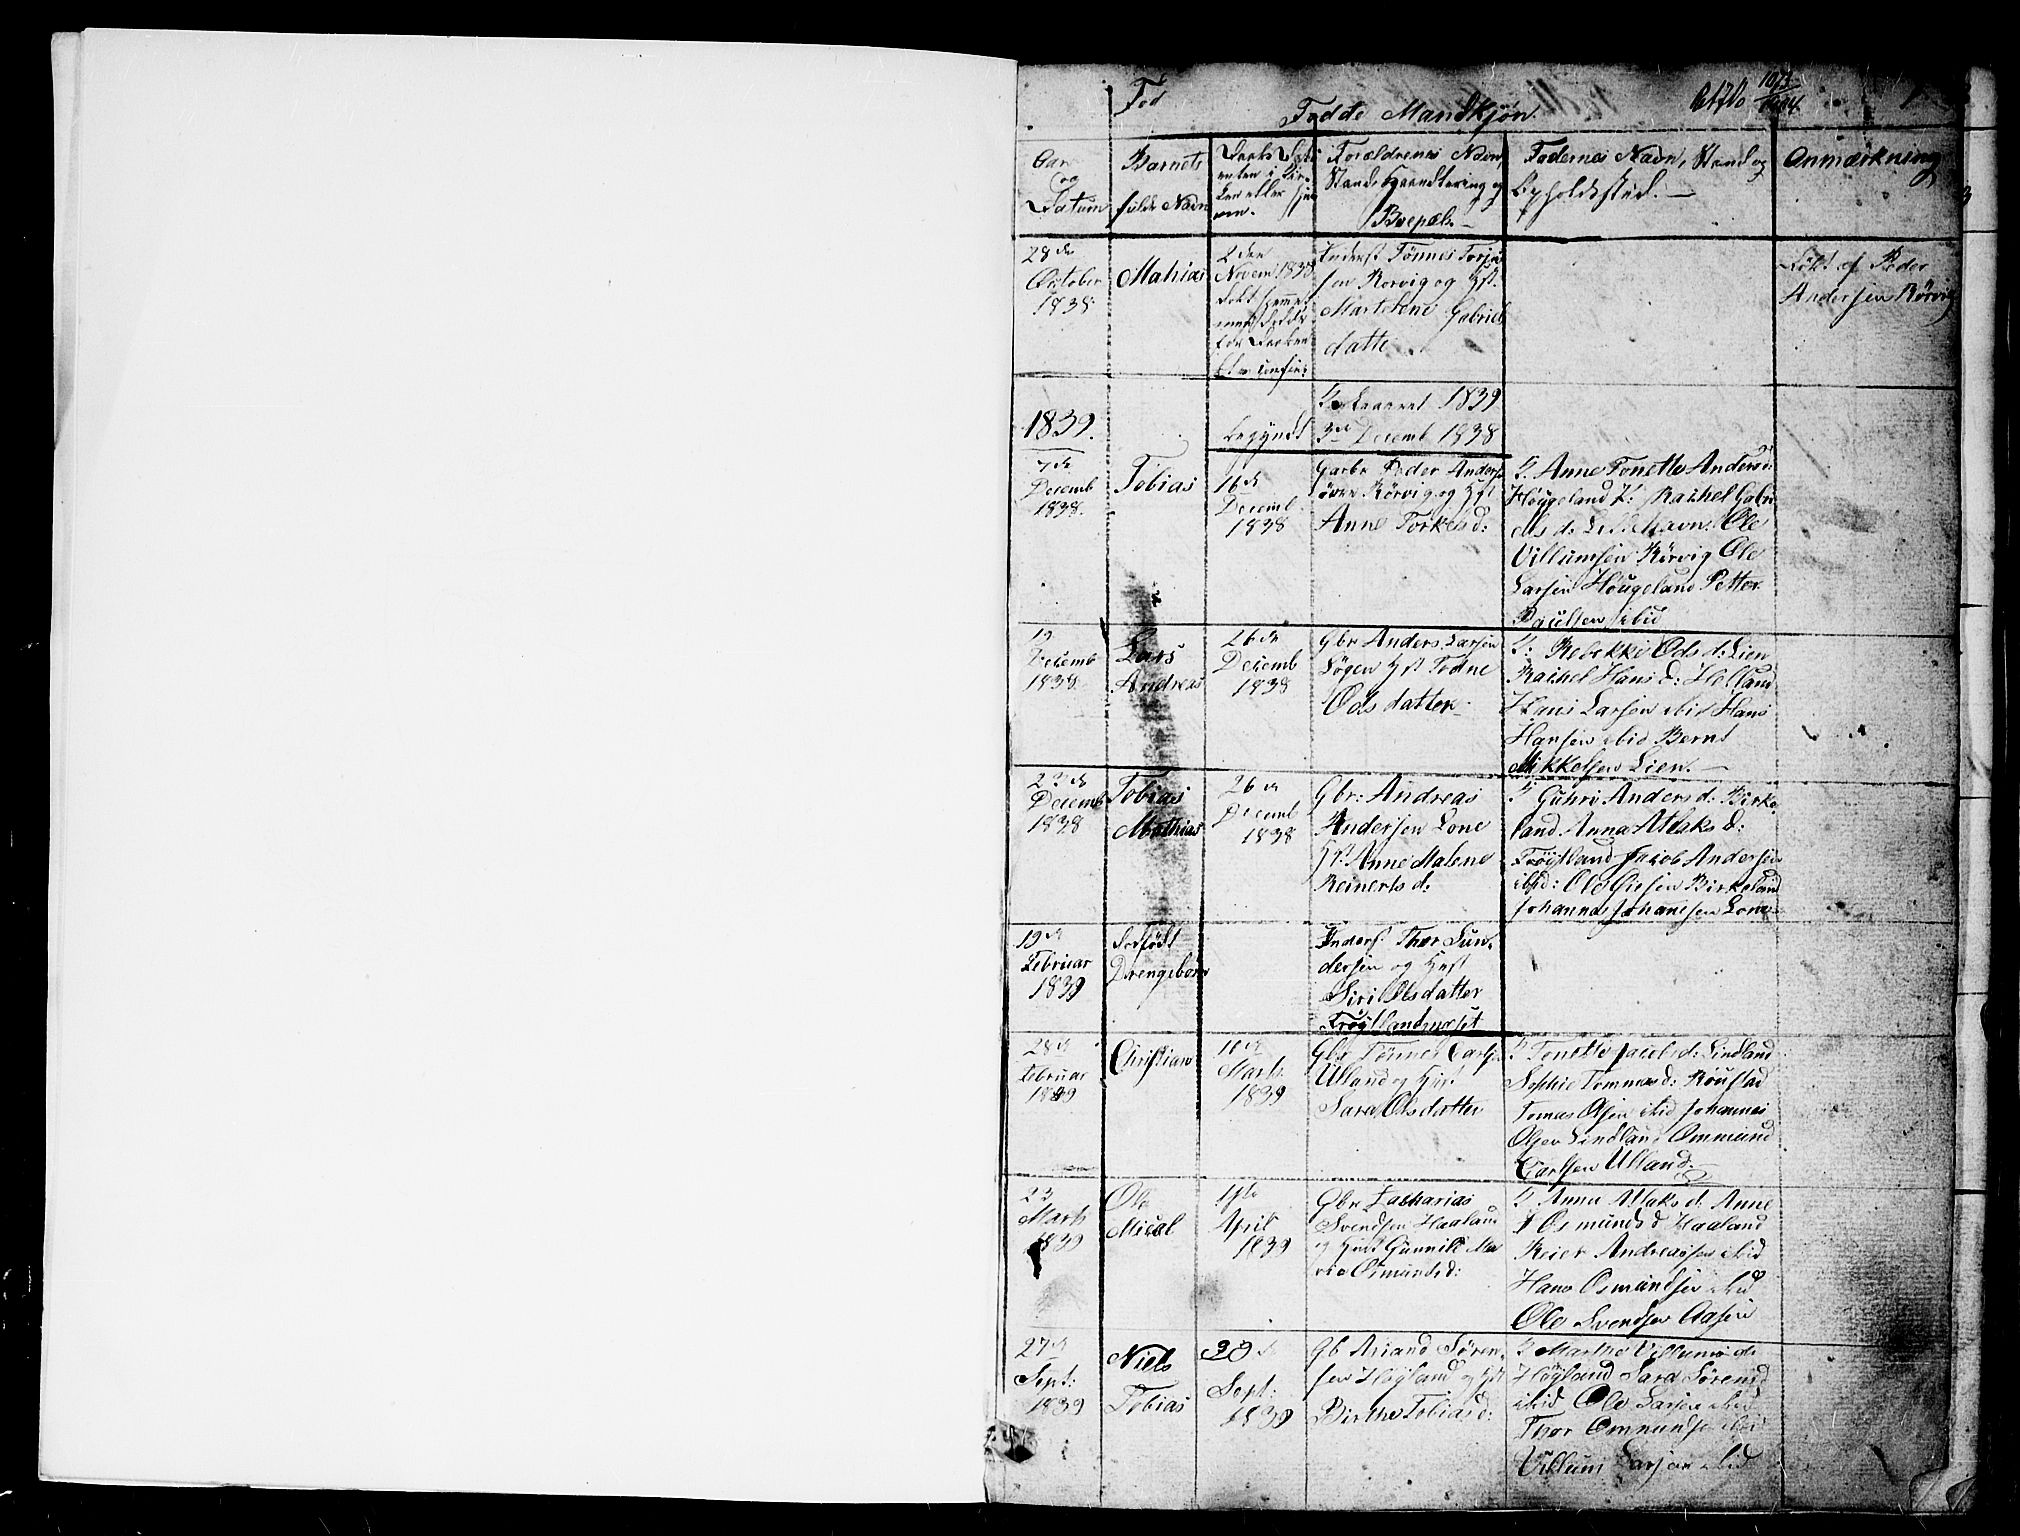 Fød
Fødte Mandkjøn.
1
Aar og Datum
Barnets fulde Navn
Forældrenes Navn, Stand, Haandtering og Bopæl
Faddernes Navn, Stand og Opholdssted.
Anmærkning
28de October 1838
Mathias
2den Novem 1838
Tønnes
Rørvig og Hst.
Gabriels
datter
Døbt af Peder
Andersen Rørvig
1839.
begyndt
Kirkeaaret 1839
3de Decemb 1838
7de Decemb 1838.
Tobias
16de Decemb. 1838
Gaarbr Peder Anders
Rørvig og Hst
Anne Torkels d:
F. Anne Tonette Anders d:
Høygeland Rachel Gabri
els d: Ole
Villumsen Rørvig Ole
Larsen Høugeland Petter
Paulsen ibid
19 Decemb 1838
Lars Andreas
26de Decemb 1838
Gbr Anders Larsen
Løgen Hst Todne
Ods datter
F: Rebekke Ods d: Lien
Rachel Hans d: Helland
Hans Larsen ibid Hans
Hansen ibid Bernt
Mikkelsen Lien.
23de Decemb 1838
Tobias Mathias
26de Decemb 1838
Gbr: Andreas
Andersen Lone
Hst. Anne Malene
Reinerts d.
F Guhri Anders d: Birke
land Anna Atlaks d:
Frøystland Jacob Andersen
ibid: Ole Birkeland
Johannes Johannesen Lone
19de Februar 1839
Dødfødt Drengebarn
Inders Thor Gun
dersen og Hust
Siri Olsdatter
28de Februar 1839
Christian
10de Marts 1839
Gbr Tønnes Carls
Ulland og Hust
Sara Olsdatter
F Tonette Jacobs d: Lindland
Sophie Tommas d: Røustad
Tomas Olsen ibid Johannes
Olsen Lindland Ommund
Carlsen Ulland.
23 Marts 1839
Ole Mical
April 1839
Gbr Zacharias
Svendsen Haaland
og Hust Gunnild Ma
ria Osmunds d:
F Anna Atlaks d: Anne
Osmunds d Haaland
Reier Andreassen ibid
Hans Osmundsen ibid
Ole Svendsen
27de Sept: 1839
Niels Tobias
29de Sept: 1839
Gb Ariand Søren
sen Høyland og Hst
Birthe Tobias d:
F Marthe Villums d:
Høyland Sara Sørens d
ibid Ole Larsen ibid
Thor Ommundsen ibid
Villum Larsen ibid